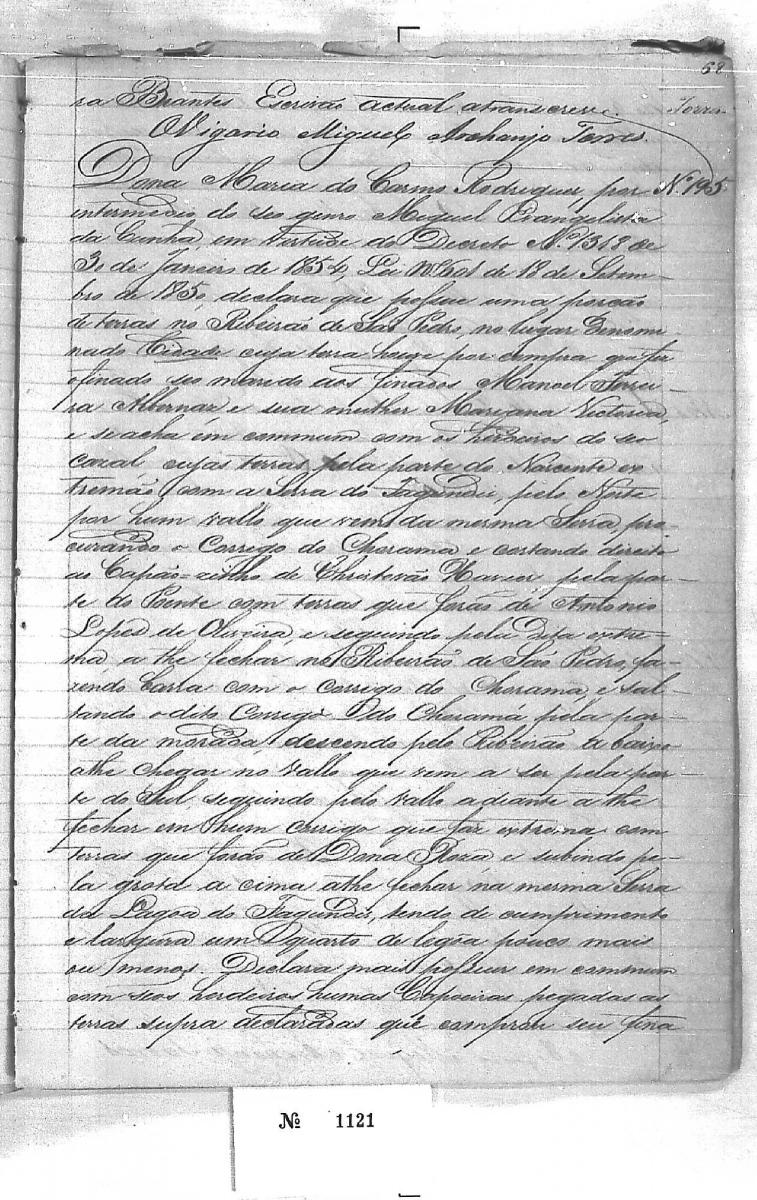 68
ra Brantes Escrivão actual a transcrevi. Torres
O Vigario Miguel Archanjo Torres.
Dona Maria do Carmo Rodrigues, por Nº 195
intermedio do seo genro Miguel Evangelista
da Cunha, em virtude do Decreto Nº 1318 de
30 de Janeiro de 1854, Lei Nº 601 de 18 de Setem-
bro de 1850, declara que possue uma porção
de terras no Ribeirão de São Pedro, no lugar denomi-
nado Cidade cuja terra houve por compra que fez
o finado seo marido aos finados Manoel Ferrei-
ra Albernáz e sua mulher Marianna Victoria,
e se acha em commum com os herdeiros do seo
cazal, cujas terras pela parte do Nascente ex-
tremão com a Serra do Fagundes, pelo Norte
por hum vallo que vem da mesma Serra, pro-
curando o Corrego do Cherama e cortando direito
ao Capão-zinho de Christovão Xavier pela par-
te do Poente com terras que forão de Antonio
Lopes de Oliveira, e seguindo pela dita extre-
ma, a the fechar no Ribeirão de São Pedro, fa-
zendo barra com o corrego do Cherama, e sal-
tando o dito Corrego do Cheramá pela par-
te da morada, descendo pelo Ribeirão a baixo
athe chegar no vallo que vem a ser pela par-
te do Sul, seguindo pelo vallo adiante a the
fechar em hum corrego que faz extrema com
terras que forão de Dona Roza, e subindo pe-
la grota a cima athe fechar na mesma Serra
da Lagoa do Fagundes, tendo de cumprimento
e largura um quarto de legôa pouco mais
ou menos. Declara mais possuir em commum
com seos herdeiros humas Capoeiras pegadas as
terras supra declaradas que comprou seu fina
Nº 1121